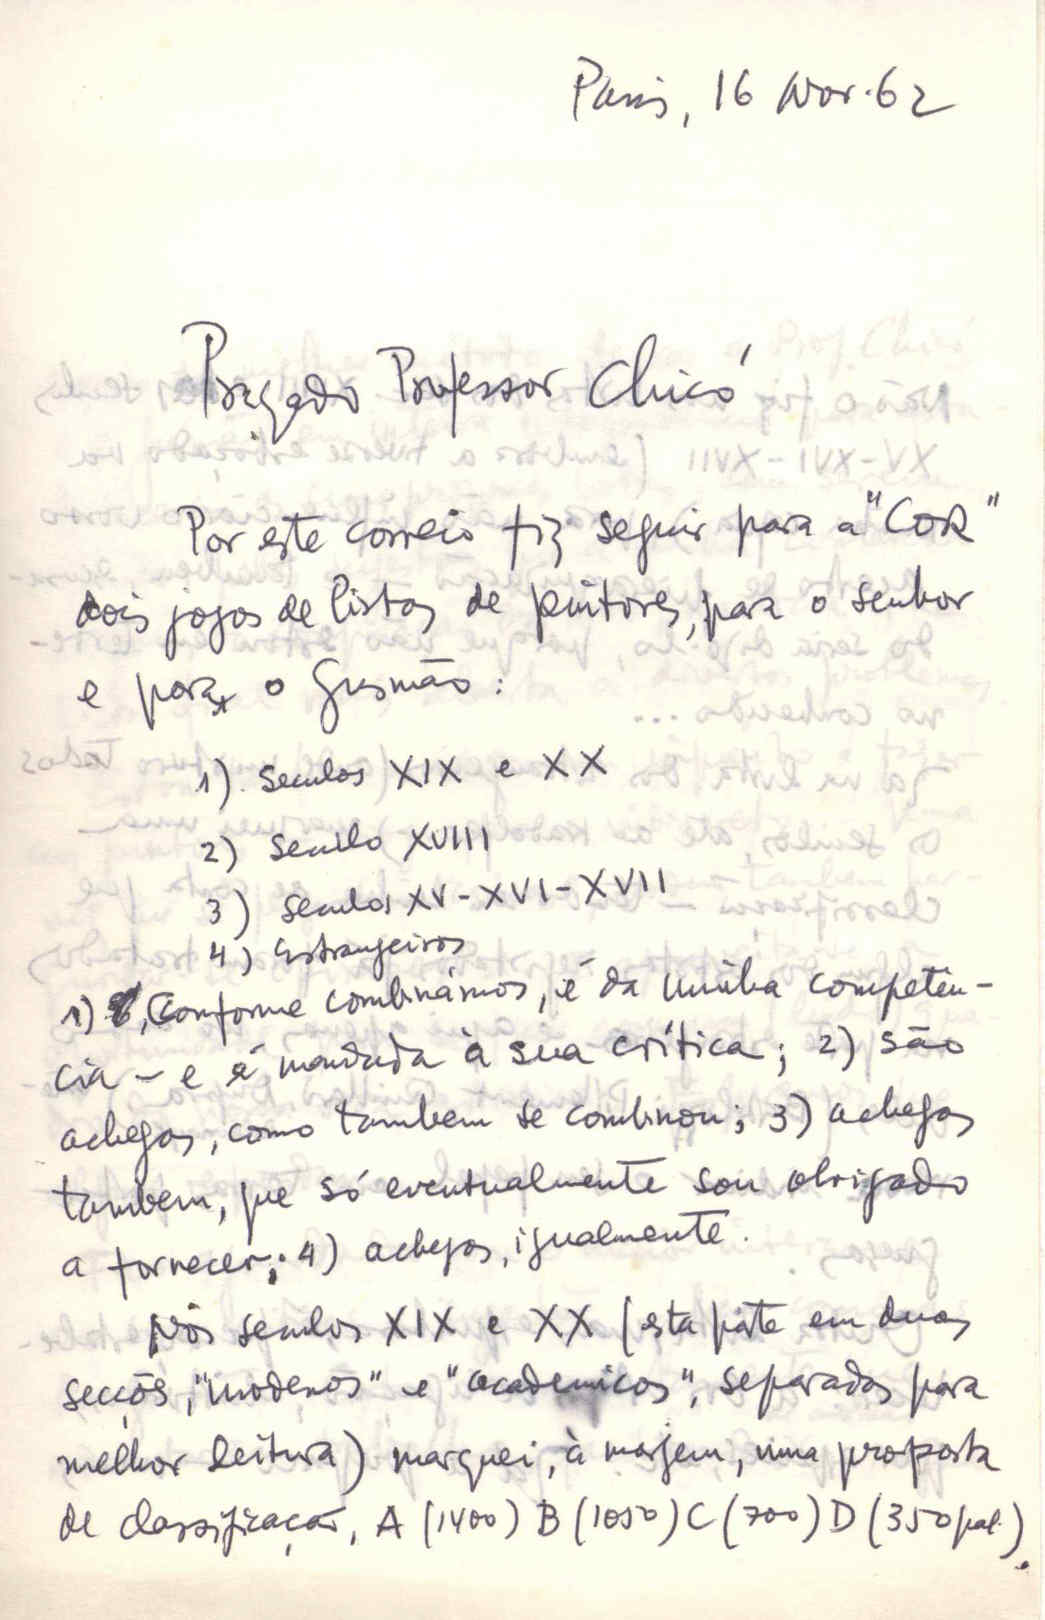 Paris, 16 Nov. 62
Prezado Professor Chicó
Por este correio fiz seguir para a "COR"
dois jogos de listas de pintores, para o senhor
e para o Gusmão:
1) Seculos XIX e XX
2) Seculo XVIII
3) Seculos XV-XVI-XVII
4) Estrangeiros
1) Conforme combinámos, é da minha competên-
cia – e é mandada à sua crítica; 2) são
achegas, como tambem se combinou; 3) achegas
tambem, que só eventualmente sou obrigado
a fornecer; 4) achegas, igualmente.
Nos seculos XIX e XX (esta parte em duas
secções, "modernos" e "academicos", separadas para
melhor leitura) marquei, à margem, uma proposta
de classificação, A (1400) B (1050) C (700) D (350 pal.),